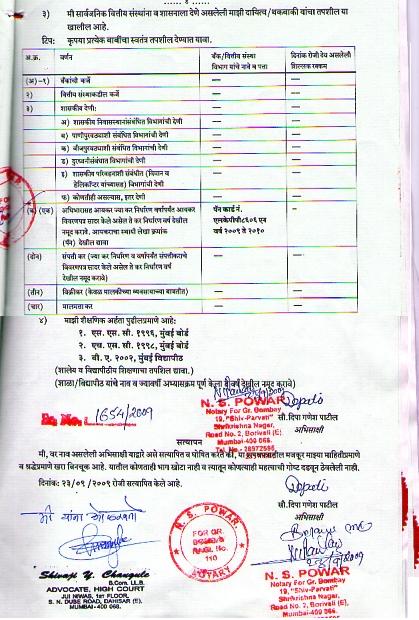 ३) मी सार्वजनिक वित्तीय संस्थांना व शासनाला देणे असलेली माझी दायित्व/थकबाकी यांचा तपशील या
खालील आहे.
टिप: कृपया प्रत्येक बाबींचा स्वतंत्र तपशील देण्यात यावा.
अ.क्र. वर्णन बँक/वित्तीय संस्था विभाग यांचे नाव व पत्ता दिनांक रोजी देय असलेली शिल्लक रक्कम
(अ)-१) बँकांची कर्जे — —
२) वित्तीय संस्थाकडील कर्जे — —
३) शासकीय देणी: — —
अ) शासकीय निवासस्थानांसंबंधित विभागांची देणी — —
ब) पाणीपुरवठ्याशी संबंधित विभागांची देणी — —
क) वीजपुरवठ्याशी संबंधित विभागांची देणी — —
ड) दुरध्वनीसंबंधात विभागांची देणी — —
इ) शासकीय परिवहनाशी संबंधीत (विमान व
हेलिकॉप्टर यांच्यासह) विभागांची देणी — —
फ) कोणतीही असल्यास, इतर देणी — —
(ब) (एक) अधिभारासह आयकर ज्या कर निर्धारण वर्षापर्यंत आयकर
विवरणपत्र सादर केले असेल ते कर निर्धारण वर्ष देखील
नमूद करावे. आयकराचा स्थायी लेखा क्रमांक
(पॅन) देखील द्यावा
पॅन कार्ड नं.
वर्ष २००९ ते २०१०
(दोन) संपत्ती कर (ज्या कर निर्धारण व वर्षापर्यंत संपत्तीकराचे
विवरणपत्र सादर केले असेल ते कर निर्धारण वर्ष
देखील नमूद करावे) — —
(तीन) विक्रीकर (केवळ मालकीच्या व्यवसायाच्या बाबतीत) — —
(चार) मालमत्ता कर — —
४) माझी शैक्षणिक अर्हता पुढीलप्रमाणे आहे:
१. एस. एस. सी. १९९६, मुंबई बोर्ड
२. एच. एस. सी. १९९८, मुंबई बोर्ड
३. बी. ए. २००२, मुंबई विद्यापीठ
(शालेय व विद्यापीठीय शिक्षणाचा तपशील द्यावा.)
(शाळा/विद्यापीठ यांचे नाव व ज्यावर्षी अभ्यासक्रम पूर्ण केला ते वर्ष देखील नमूद करावे)
N. S. POWAR
Notary For Gr. Bombay
19, "Shiv-Parvati"
Shrikrishna Nagar,
Road No. 2, Borivali (E)
Mumbai-400 066.
Tel. No. 28972596
सौ. दिपा गणेश पाटील
अभिसाक्षी
Sr. No. 1654/2009
सत्यापन
मी, वर नाव असलेली अभिसाक्षी याद्वारे असे सत्यापित व घोषित करते की, या शपथपत्रातील मजकूर माझ्या माहितीप्रमाणे
व श्रद्धेप्रमाणे खरा बिनचूक आहे. यातील कोणताही भाग खोटा नाही व त्यातून कोणत्याही महत्वाची गोष्ट दडवून ठेवलेली नाही.
दिनांक: २३/०९/२००९ रोजी सत्यापित केले आहे.
सौ.दिपा गणेश पाटील
अभिसाक्षी
मी यांना ओळखतो
N. S. POWAR
FOR GR.
BOMBAY
REGI. No.
110
NOTARY
Shivaji Y. Changule
B.Com, LL.B.
ADVOCATE, HIGH COURT
JIJI NIWAS, 1ST FLOOR,
S. N. DUBE ROAD, DAHISAR (E),
MUMBAI-400 068.
N. S. POWAR
Notary For Gr. Bombay
19, "Shiv-Parvati"
Shrikrishna Nagar,
Road No. 2, Borivali (E)
Mumbai-400 066.